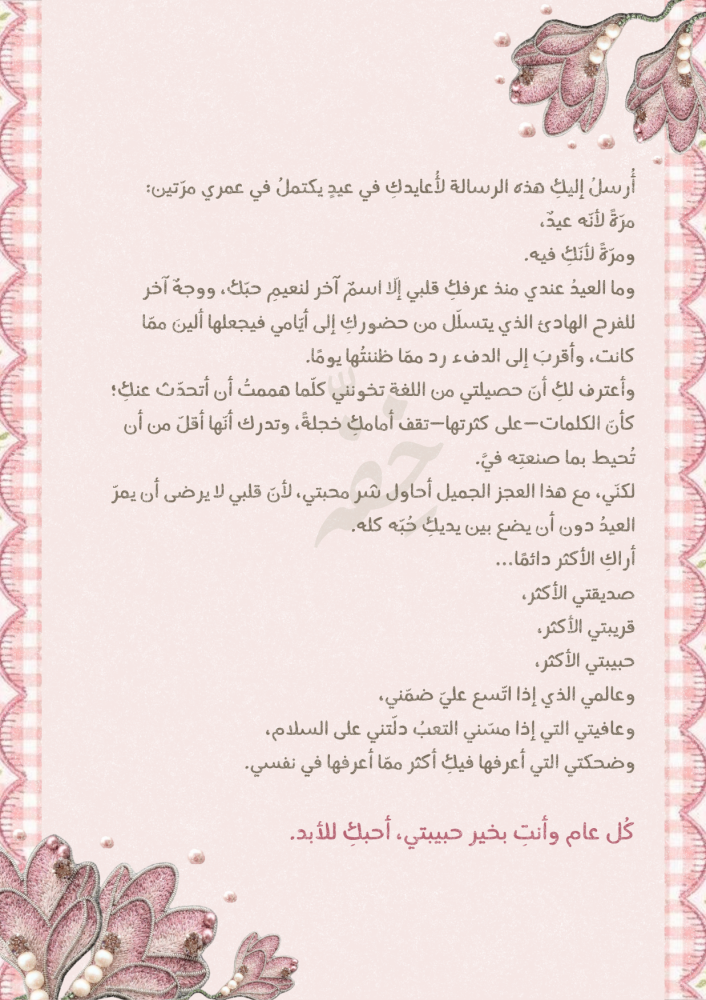 أُرسلُ إليكِ هذه الرسالة لأُعايدكِ في عيدٍ يكتملُ في عمري مرّتين:
مرّةً لأنّه عيدٌ،
ومرّةً لأنّكِ فيه.
وما العيدُ عندي منذ عرفكِ قلبي إلّا اسمٌ آخر لنعيمِ حبّكِ، ووجهٌ آخر
للفرح الهادئ الذي يتسلّل من حضوركِ إلى أيّامي فيجعلها ألينَ ممّا
كانت، وأقربَ إلى الدفء رد ممّا ظننتُها يومًا.
وأعترف لكِ أنّ حصيلتي من اللغة تخونني كلّما هممتُ أن أتحدّث عنكِ؛
كأنّ الكلمات—على كثرتها—تقف أمامكِ خجلةً، وتدرك أنّها أقلّ من أن
تُحيط بما صنعتِه فيَّ.
لكنّي، مع هذا العجز الجميل أحاول شر محبتي، لأنّ قلبي لا يرضى أن يمرّ
العيدُ دون أن يضع بين يديكِ حُبّه كله.
أراكِ الأكثر دائمًا...
صديقتي الأكثر،
قريبتي الأكثر،
حبيبتي الأكثر،
وعالمي الذي إذا اتّسع عليّ ضمّني،
وعافيتي التي إذا مسّني التعبُ دلّتني على السلام،
وضحكتي التي أعرفها فيكِ أكثر ممّا أعرفها في نفسي.
كُل عام وأنتِ بخير حبيبتي، أحبكِ للأبد.